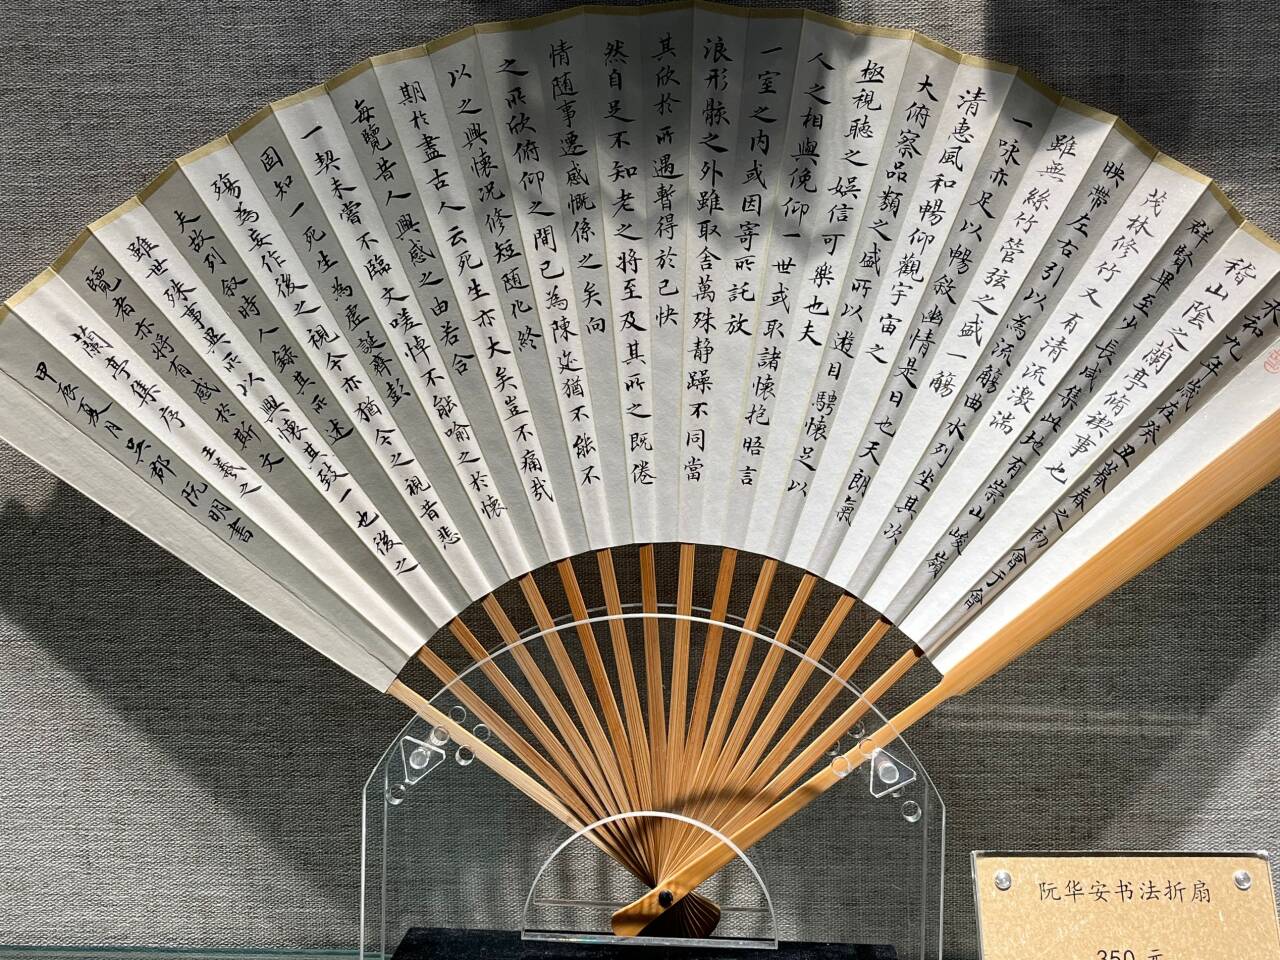 永和九年歲在癸丑暮春之初會于會
稽山陰之蘭亭脩禊事也
群賢畢至少長咸集此地有崇山峻嶺
茂林修竹又有清流激湍
映帶左右引以為流觴曲水列坐其次
雖無絲竹管弦之盛一觴
一咏亦足以暢敘幽情是日也天朗氣
清惠風和暢仰觀宇宙之
大俯察品類之盛所以遊目騁懷足以
極視聽之娛信可樂也夫
人之相與俛仰一世或取諸懷抱晤言
一室之内或因寄所託放
浪形骸之外雖取舍萬殊静躁不同當
其欣於所遇暫得於己快
然自足不知老之将至及其所之既倦
情随事遷感慨係之矣向
之所欣俯仰之間已為陳迹猶不能不
以之興懷况修短随化終
期於盡古人云死生亦大矣豈不痛哉
每覽昔人興感之由若合
一契未嘗不臨文嗟悼不能喻之於懷
固知一死生為虛誕齊彭
殤為妄作後之視今亦猶今之視昔悲
夫故列敘時人録其所述
雖世殊事異所以興懷其致一也後之
覽者亦將有感於斯文
蘭亭集序 王羲之
甲辰夏月吳郡阮明書
阮华安书法折扇
350 元